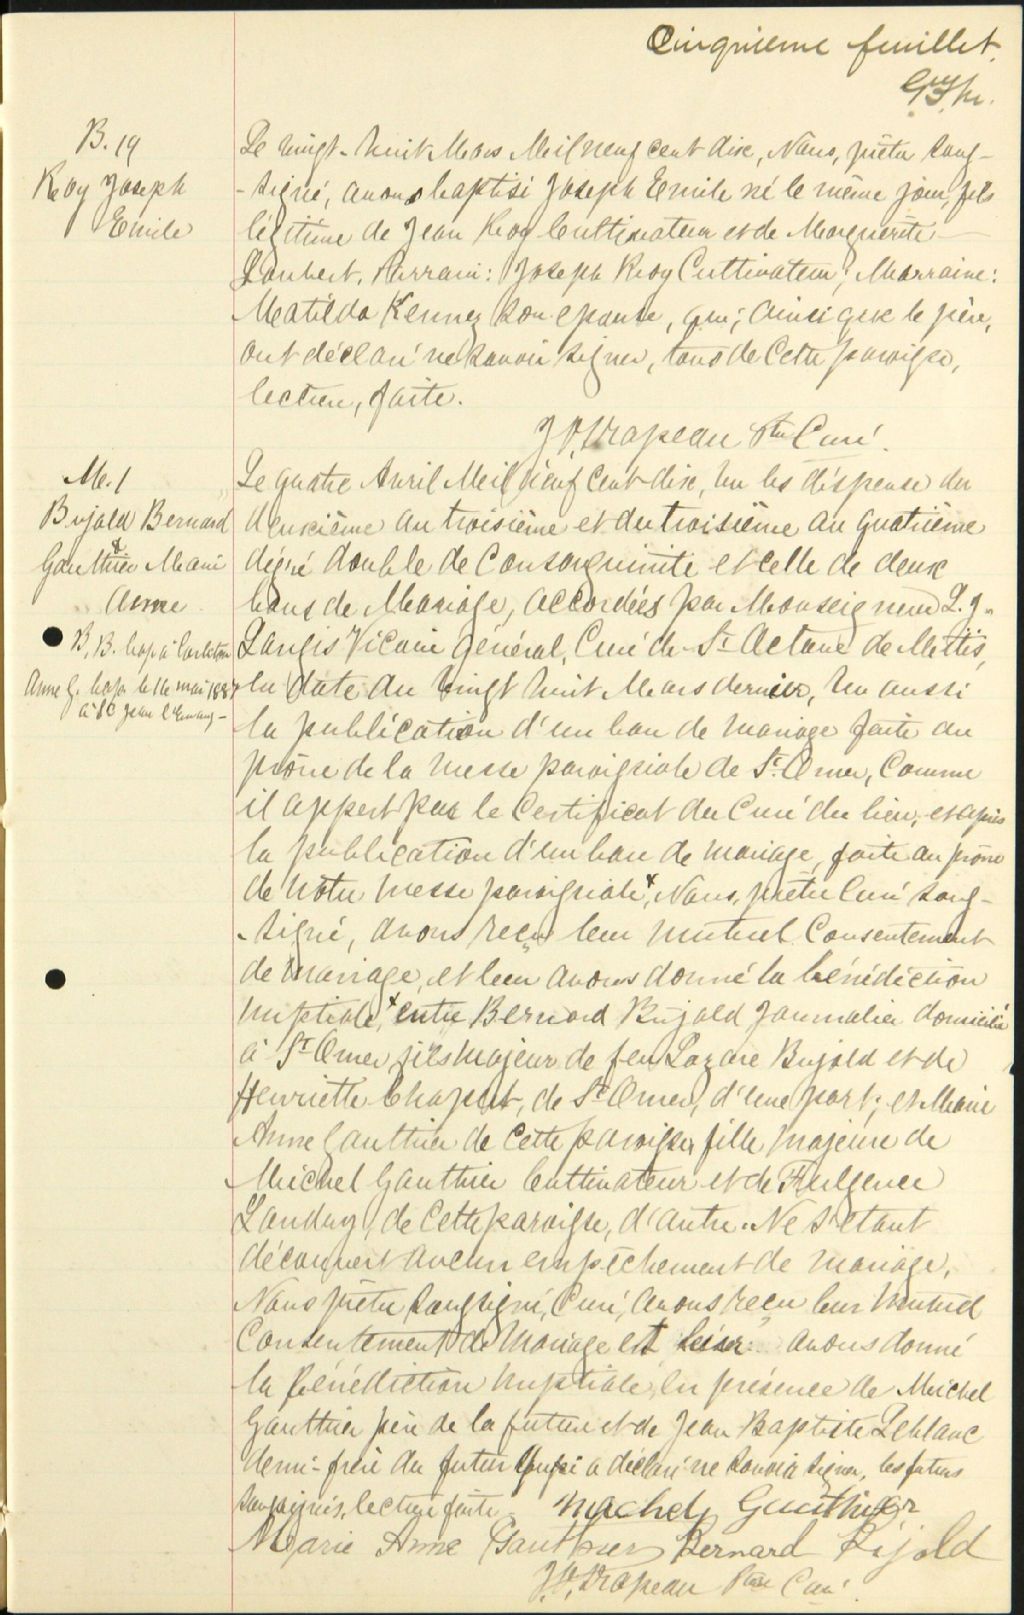 Cinquième feuillet.
B. 19
Roy Joseph
Emile
Le vingt-huit Mars Mil neuf cent dix, Nous, prêtre sous-
-signé, avons baptisé Joseph Emile né le même jour, fils
légitime de Jean Roy Cultivateur et de Marguerite
Loubert. Parrain: Joseph Roy Cultivateur; Marraine:
Matilda Kenney son épouse, qui, ainsi que le père,
ont déclaré ne savoir signer, tous de cette paroisse,
lecture, faite.
J. D. Drapeau Ptre Curé.
M. 1
Bujold Bernard
&
Gauthier Marie
Anne
B. B. bap à Carleton
Anne G. bapt. le 16 mai 188
à St Jean l'Evang-
Le quatre Avril Mil neuf cent dix, Vu les dispense du
deuxième au troisième et du troisième au quatrième
dégré double de Consanguinité et celle de deux
bans de Mariage, accordées par Monseigneur L. J.
Langis Vicaire Général, Curé de St Octave de Métis,
en date du vingt huit Mars dernier, Vu aussi
la publication d'un ban de mariage faite au
prône de la messe paroissiale de St Omer, Comme
il appert par le Certificat du Curé du lieu, et après
la publication d'un ban de mariage, faite au prône
de notre messe paroissiale, Nous, prêtre Curé sous-
-signé, avons reçu leur mutuel Consentement
de mariage, et leur avons donné la bénédiction
nuptiale, entre Bernard Bujold Journalier domicilié
à St Omer, fils majeur de feu Lazare Bujold et de
Henriette Chaput, de St Omer, d'une part; et Marie
Anne Gauthier de cette paroisse, fille majeure de
Michel Gauthier Cultivateur et de Fulgence
Landry, de cette paroisse, d'autre. Ne s'étant
découvert aucun empêchement de mariage,
Nous prêtre soussigné, Curé, avons reçu leur mutuel
Consentement de Mariage et leur avons donné
la Bénédiction nuptiale, en présence de Michel
Gauthier père de la future et de Jean Baptiste Leblanc
demi-frère du futur qui a déclaré ne savoir signer, les futurs
soussignés, lecture faite. Michel Gauthier
Marie Anne Gauthier Bernard Bijold
J. D. Drapeau Ptre Curé.